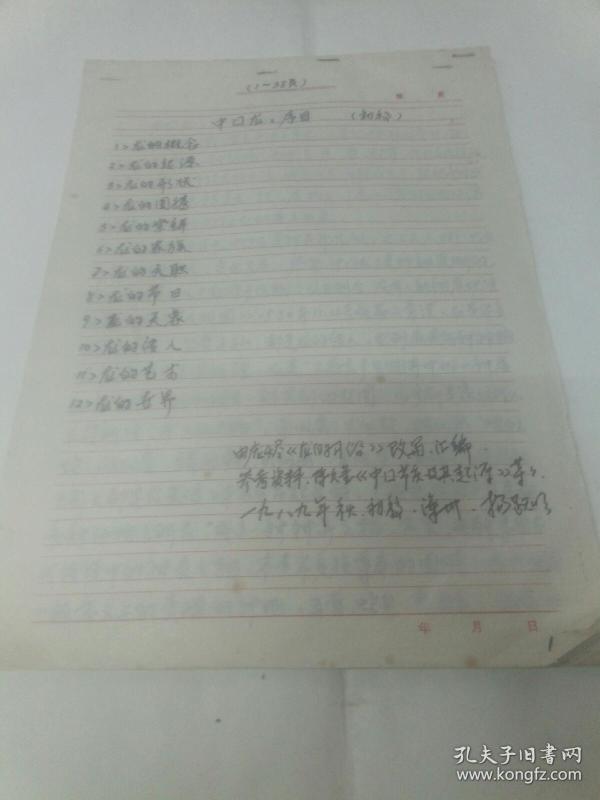 (1~38页)
中口龙：序目 (初稿)
1>龙的概念
2>龙的起源
3>龙的形状
4>龙的图腾
5>龙的崇拜
6>龙的家族
7>龙的天职
8>龙的节日
9>龙的天象
10>龙的传人
11>龙的艺术
12>龙的世界
改写、汇编.
参考资料、《中口节庆及其起源》等、
一九八九年秋、初稿、漳州、杨
年 月 日
1
孔夫子旧书网
www.kongfz.com